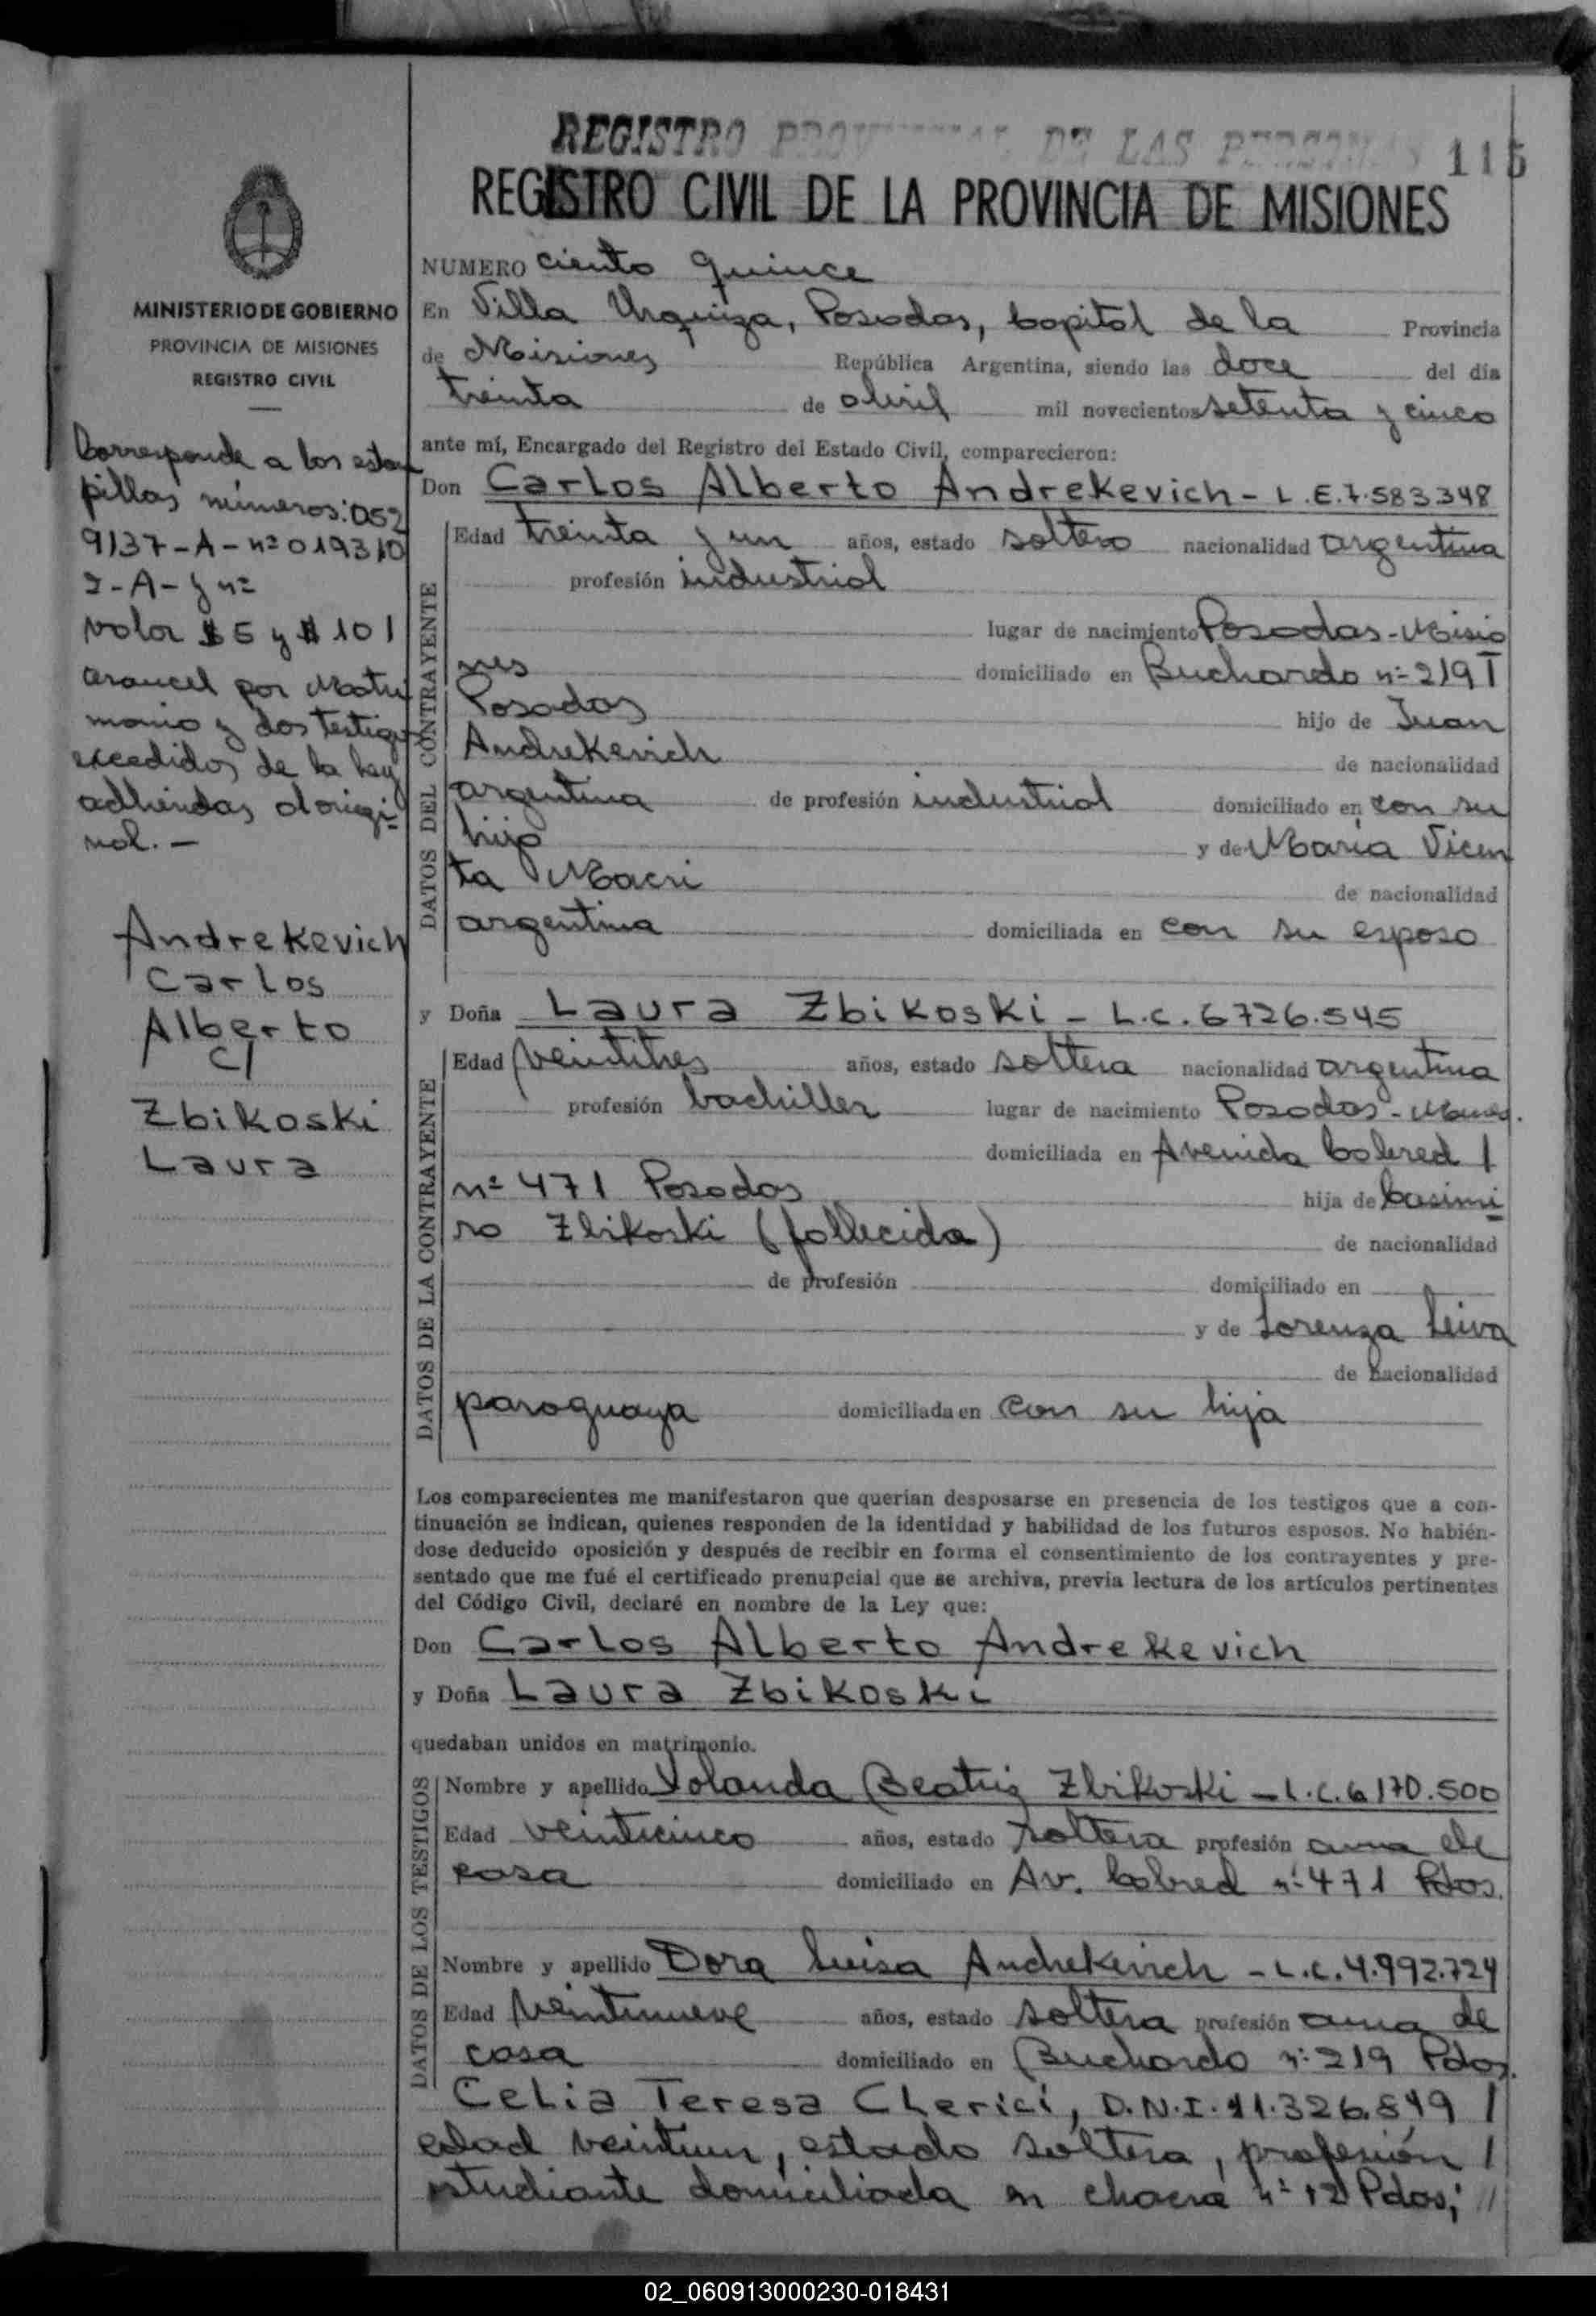 REGISTRO PROVINCIAL DE LAS PERSONAS 115
REGISTRO CIVIL DE LA PROVINCIA DE MISIONES
MINISTERIO DE GOBIERNO
PROVINCIA DE MISIONES
REGISTRO CIVIL
Corresponde a las estam
pillas números: 052
9137-A-nº 019310
2-A- y nº
valor $ 5 y $ 10 /
arancel por Matri
monio y dos testigos
excedidos de la ley
adheridas al origi=
nal. —
Andrekevich
Carlos
Alberto
c/
Zbikoski
Laura
NUMERO ciento quince
En Villa Urquiza, Posadas, Capital de la Provincia
de Misiones República Argentina, siendo las doce del día
treinta de abril mil novecientos setenta y cinco
ante mí, Encargado del Registro del Estado Civil, comparecieron:
Don Carlos Alberto Andrekevich - L.E.7.583.348
DATOS DEL CONTRAYENTE
Edad treinta y un años, estado soltero nacionalidad argentina
profesión industrial
lugar de nacimiento Posadas - Misio
nes domiciliado en Buchardo nº 219 /
Posadas hijo de Juan
Andrekevich de nacionalidad
argentina de profesión industrial domiciliado en con su
hijo y de María Vicen
ta Macri de nacionalidad
argentina domiciliada en con su esposo
y Doña Laura Zbikoski - L.C. 6726.545
DATOS DE LA CONTRAYENTE
Edad veintitres años, estado soltera nacionalidad argentina
profesión bachiller lugar de nacimiento Posadas - Mnes.
domiciliada en Avenida Cabred /
nº 471 Posadas hija de Casimi
ro Zbikoski (fallecida) de nacionalidad
de profesión domiciliado en
y de Lorenza Leiva
de nacionalidad
paraguaya domiciliada en con su hija
Los comparecientes me manifestaron que querían desposarse en presencia de los testigos que a con-
tinuación se indican, quienes responden de la identidad y habilidad de los futuros esposos. No habién-
dose deducido oposición y después de recibir en forma el consentimiento de los contrayentes y pre-
sentado que me fué el certificado prenupcial que se archiva, previa lectura de los artículos pertinentes
del Código Civil, declaré en nombre de la Ley que:
Don Carlos Alberto Andrekevich
y Doña Laura Zbikoski
quedaban unidos en matrimonio.
DATOS DE LOS TESTIGOS
Nombre y apellido Yolanda Beatriz Zbikoski - L.C. 6170.500
Edad veinticinco años, estado soltera profesión ama de
casa domiciliado en Av. Cabred nº 471 Pdas.
Nombre y apellido Dora Luisa Andrekevich - L.C. 4.992.724
Edad veintinueve años, estado soltera profesión ama de
casa domiciliado en Buchardo nº 219 Pdas.
Celia Teresa Clerici, D.N.I. 11.326.849 /
edad veintiun, estado soltera, profesión /
estudiante domiciliada en chacra nº 12 Pdas; //
02_060913000230-018431